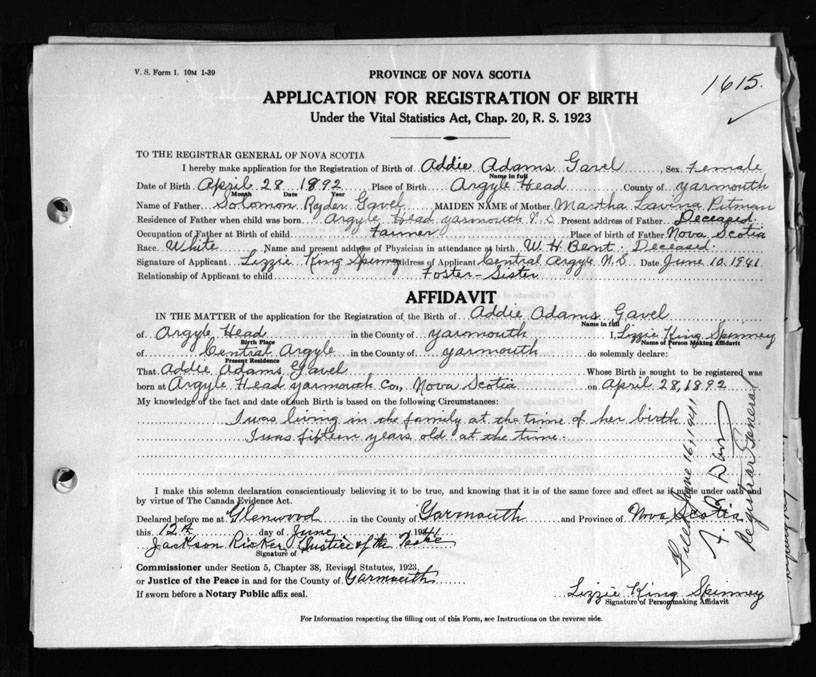 V. S. Form 1. 10M 1-39
1615.
PROVINCE OF NOVA SCOTIA
APPLICATION FOR REGISTRATION OF BIRTH
Under the Vital Statistics Act, Chap. 20, R. S. 1923
TO THE REGISTRAR GENERAL OF NOVA SCOTIA
I hereby make application for the Registration of Birth of Addie Adams Gavel, Sex Female
Name in full
Date of Birth April 28 1892 Place of Birth Argyle Head County of Yarmouth
Month Date Year
Name of Father Solomon Ryder Gavel MAIDEN NAME of Mother Martha Lavina Pitman
Residence of Father when child was born Argyle Head Yarmouth N.S Present address of Father Deceased
Occupation of Father at Birth of child Farmer Place of birth of Father Nova Scotia
Race White Name and present address of Physician in attendance at birth W. H. Bent. Deceased.
Signature of Applicant Lizzie King Spinney Address of Applicant Central Argyle N.S Date June 10, 1941
Relationship of Applicant to child Foster-Sister
AFFIDAVIT
IN THE MATTER of the application for the Registration of the Birth of Addie Adams Gavel
Name in full
of Argyle Head in the County of Yarmouth I, Lizzie King Spinney
Birth Place Name of Person Making Affidavit
of Central Argyle in the County of Yarmouth do solemnly declare:
Present Residence
That Addie Adams Gavel Whose Birth is sought to be registered was
born at Argyle Head Yarmouth Co, Nova Scotia on April 28, 1892
My knowledge of the fact and date of such Birth is based on the following Circumstances:
I was living in the family at the time of her birth
I was fifteen years old at the time.
I make this solemn declaration conscientiously believing it to be true, and knowing that it is of the same force and effect as if made under oath and
by virtue of The Canada Evidence Act.
Declared before me at Glenwood in the County of Yarmouth and Province of Nova Scotia
this 12th day of June 1941
Jackson Ricker Justice of the Peace
Signature of
Commissioner under Section 5, Chapter 38, Revised Statutes, 1923,
or Justice of the Peace in and for the County of Yarmouth
If sworn before a Notary Public affix seal.
Lizzie King Spinney
Signature of Person making Affidavit
For Information respecting the filling out of this Form, see Instructions on the reverse side.
June 16, 1941
Registrar General